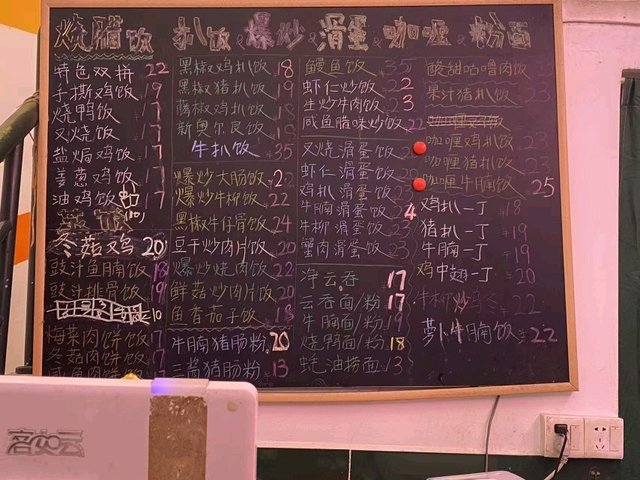 烧腊饭 扒饭 爆炒 滑蛋 咖喱 粉面
特色双拼 22
手撕鸡饭 19
烧鸭饭 17
叉烧饭 17
盐焗鸡饭 17
姜葱鸡饭 17
油鸡饭 17
冬菇鸡 20
豉汁鱼腩饭 18
豉汁排骨饭 19
梅菜肉饼饭 17
冬菇肉饼饭 17
咸鱼肉饼饭
黑椒鸡扒饭 18
黑椒猪扒饭 19
藤椒鸡扒饭 18
新奥尔良饭 18
牛扒饭 35
爆炒大肠饭 22
爆炒牛柳饭 22
黑椒牛仔骨饭 24
豆干炒肉片饭 20
爆炒烧肉饭 22
鲜菇炒肉片饭 20
鱼香茄子饭 18
牛腩猪肠粉 20
三酱猪肠粉 13
鳗鱼饭 35
虾仁炒饭 2
生炒牛肉饭 3
咸鱼腊味炒饭 22
叉烧滑蛋饭
虾仁滑蛋饭
鸡扒滑蛋饭 23
牛腩滑蛋饭 4
牛柳滑蛋饭 23
蟹肉滑蛋饭 23
净云吞 17
云吞面/粉 17
牛腩面/粉 19
烧鸭面/粉 18
蚝油捞面 13
酸甜咕噜肉饭
果汁猪扒饭 23
咖喱鸡扒饭 23
咖喱猪扒饭 23
咖喱牛腩饭 25
鸡扒一丁 18
猪扒一丁 19
牛腩一丁 19
鸡中翅一丁 20
萝卜牛腩饭 22
客如云